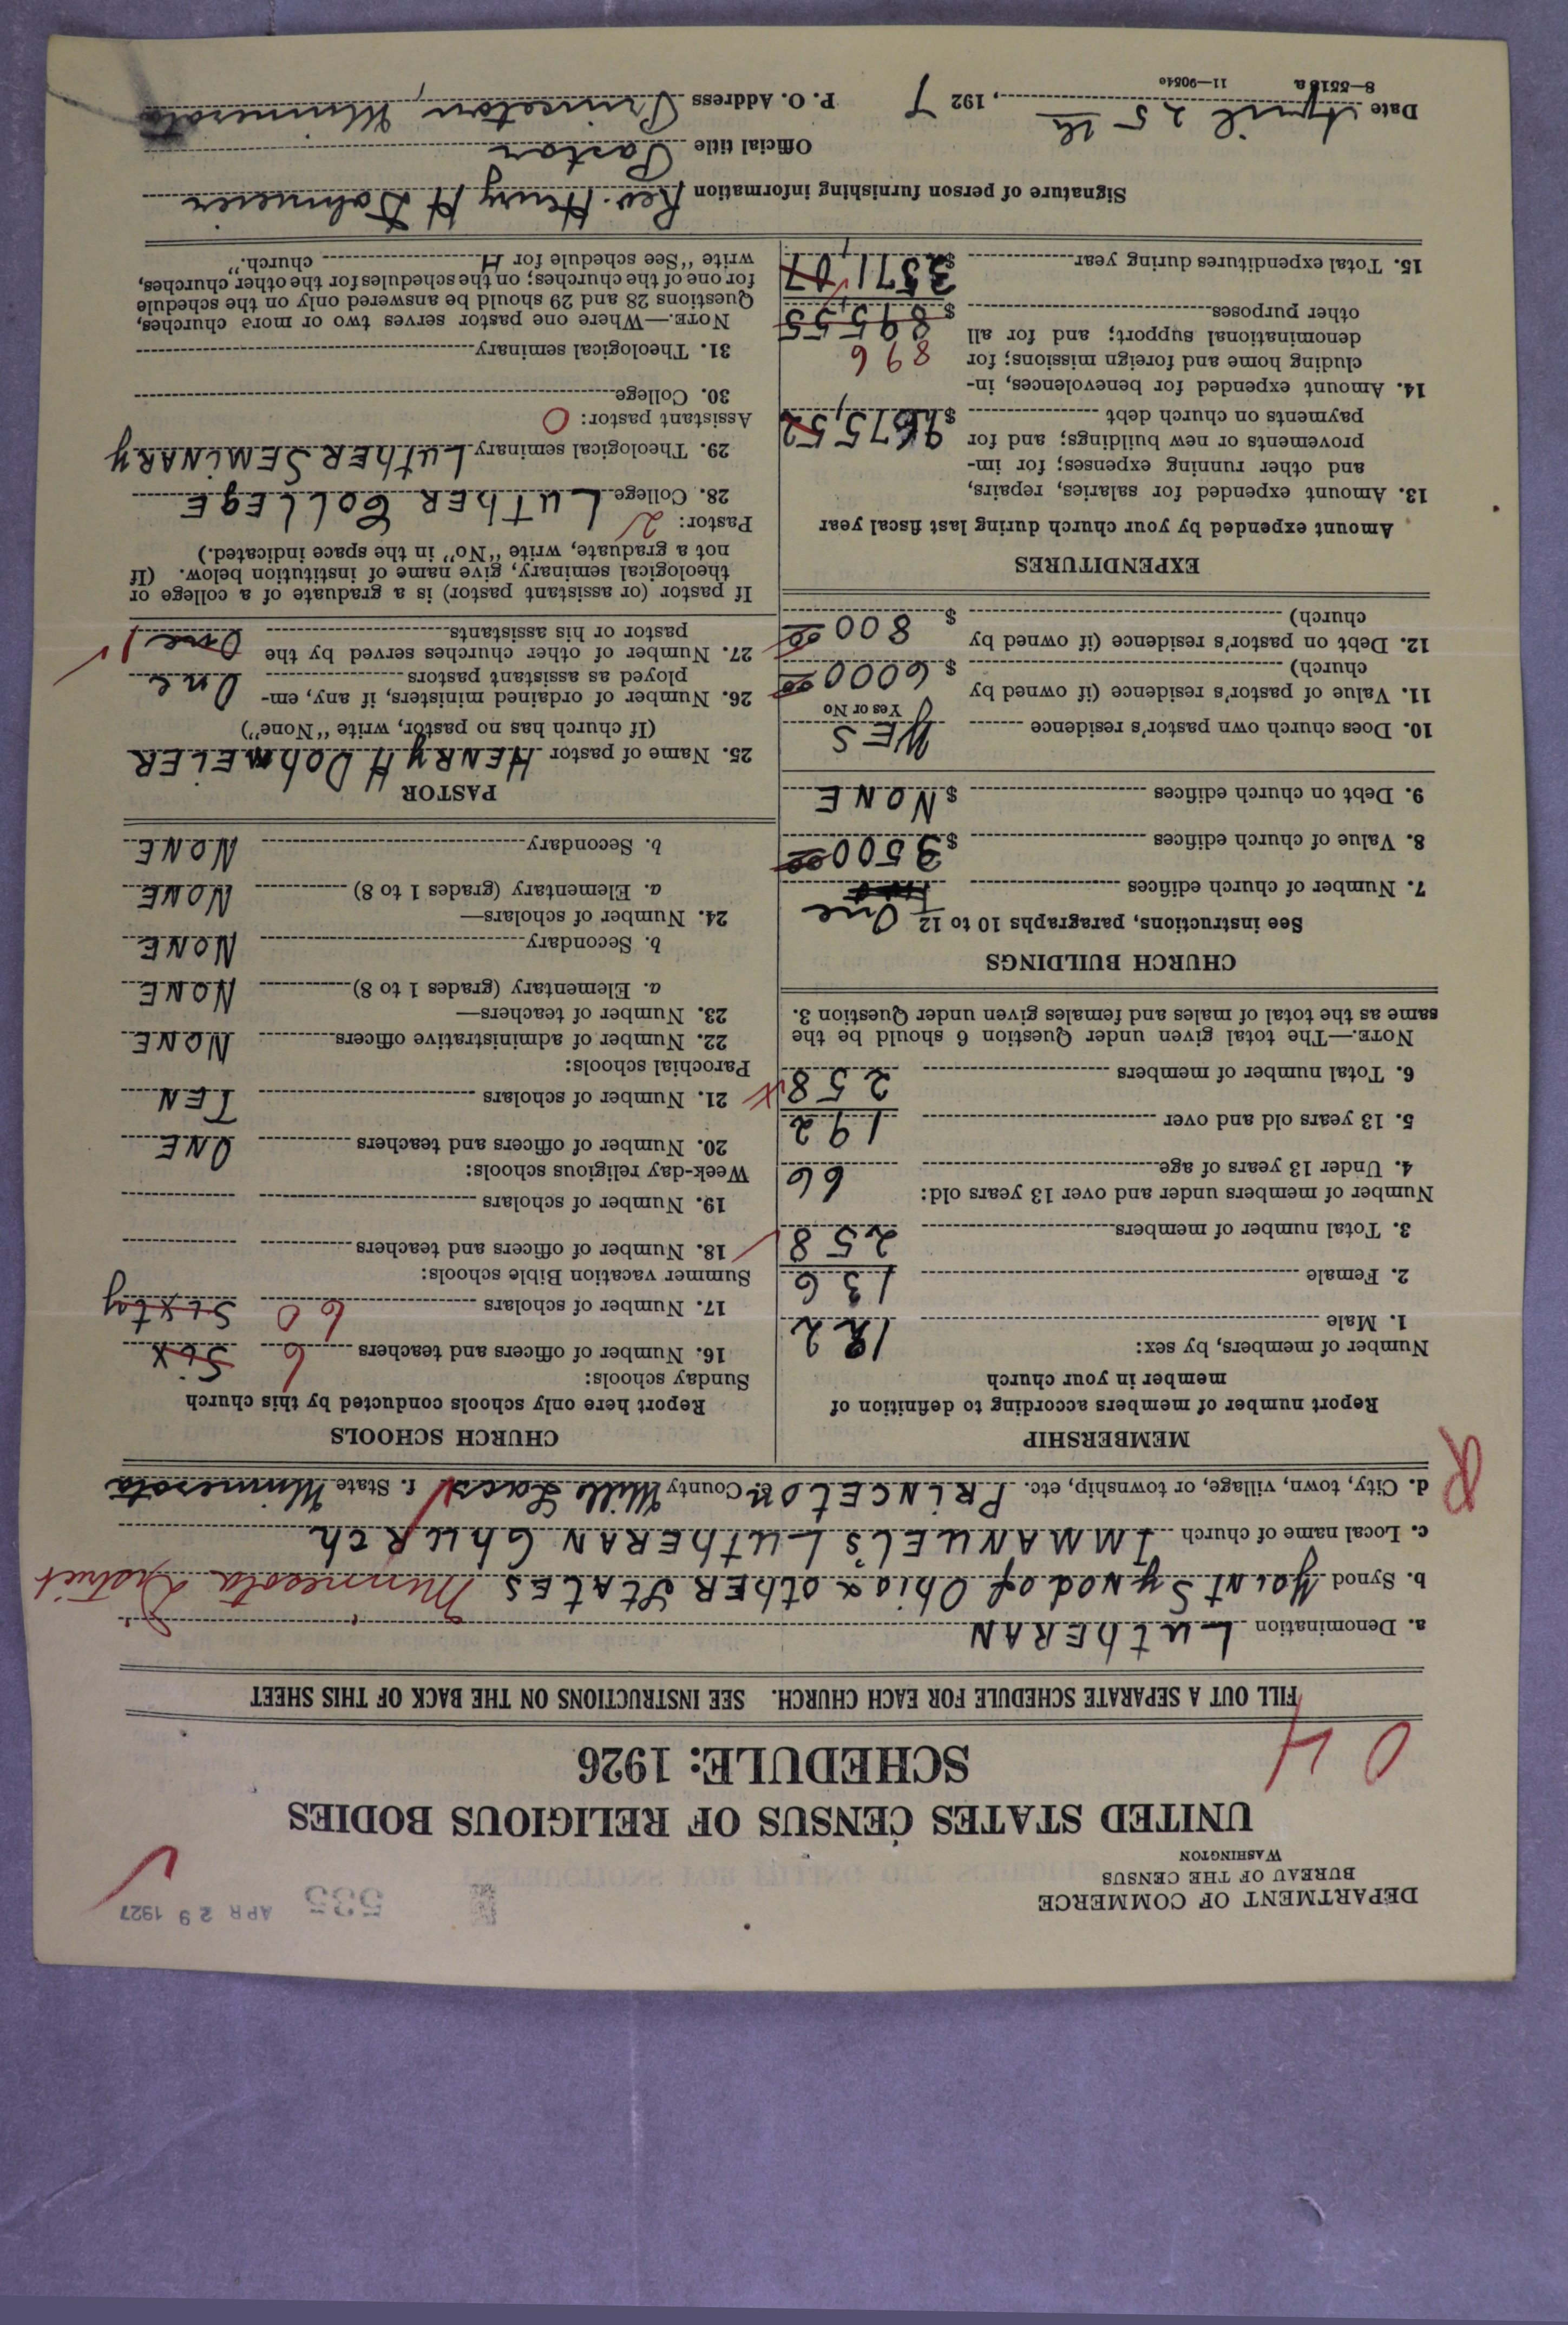 DEPARTMENT OF COMMERCE
BUREAU OF THE CENSUS
WASHINGTON
535 APR 29 1927
UNITED STATES CENSUS OF RELIGIOUS BODIES
SCHEDULE: 1926
04
FILL OUT A SEPARATE SCHEDULE FOR EACH CHURCH. SEE INSTRUCTIONS ON THE BACK OF THIS SHEET
a. Denomination LuthERAN
b. Synod Joint Synod of Ohio & othER StAtES Minnesota District
c. Local name of church IMMANUEL'S LuthERAN ChuRch
d. City, town, village, or township, etc. PRINCETON e. County Mille Lacs f. State Minnesota
R
MEMBERSHIP
Report number of members according to definition of
member in your church
Number of members, by sex:
1. Male 122
2. Female 136
3. Total number of members 258
Number of members under and over 13 years old:
4. Under 13 years of age 66
5. 13 years old and over 192
6. Total number of members 258
NOTE.—The total given under Question 6 should be the
same as the total of males and females given under Question 3.
CHURCH BUILDINGS
See instructions, paragraphs 10 to 12 One
7. Number of church edifices
8. Value of church edifices $3500 00
9. Debt on church edifices $NONE
10. Does church own pastor's residence YES
Yes or No
11. Value of pastor's residence (if owned by
church) $6000 00
12. Debt on pastor's residence (if owned by
church) $800 00
EXPENDITURES
Amount expended by your church during last fiscal year
13. Amount expended for salaries, repairs,
and other running expenses; for im-
provements or new buildings; and for
payments on church debt $2675,52
14. Amount expended for benevolences, in-
cluding home and foreign missions; for 896
denominational support; and for all
other purposes $895,55
15. Total expenditures during year $3571,07
CHURCH SCHOOLS
Report here only schools conducted by this church
Sunday schools:
16. Number of officers and teachers 6 Six
17. Number of scholars 60 Sixty
Summer vacation Bible schools:
18. Number of officers and teachers
19. Number of scholars
Week-day religious schools:
20. Number of officers and teachers ONE
21. Number of scholars TEN
Parochial schools:
22. Number of administrative officers NONE
23. Number of teachers—
a. Elementary (grades 1 to 8) NONE
b. Secondary NONE
24. Number of scholars—
a. Elementary (grades 1 to 8) NONE
b. Secondary NONE
PASTOR
25. Name of pastor HENRY H DohMEiER
(If church has no pastor, write "None")
26. Number of ordained ministers, if any, em-
ployed as assistant pastors One
27. Number of other churches served by the
pastor or his assistants One 1
If pastor (or assistant pastor) is a graduate of a college or
theological seminary, give name of institution below. (If
not a graduate, write "No" in the space indicated.)
Pastor: 2
28. College LuthER COLLEgE
29. Theological seminary LuthER SEMiNARY
Assistant pastor: 0
30. College
31. Theological seminary
NOTE.—Where one pastor serves two or more churches,
Questions 28 and 29 should be answered only on the schedule
for one of the churches; on the schedules for the other churches,
write "See schedule for H church."
Signature of person furnishing information Rev. Henry H Dohmeier
Official title Pastor
Date April 25 th, 1927 P. O. Address Princeton, Minnesota
8—5518a 11—9054c